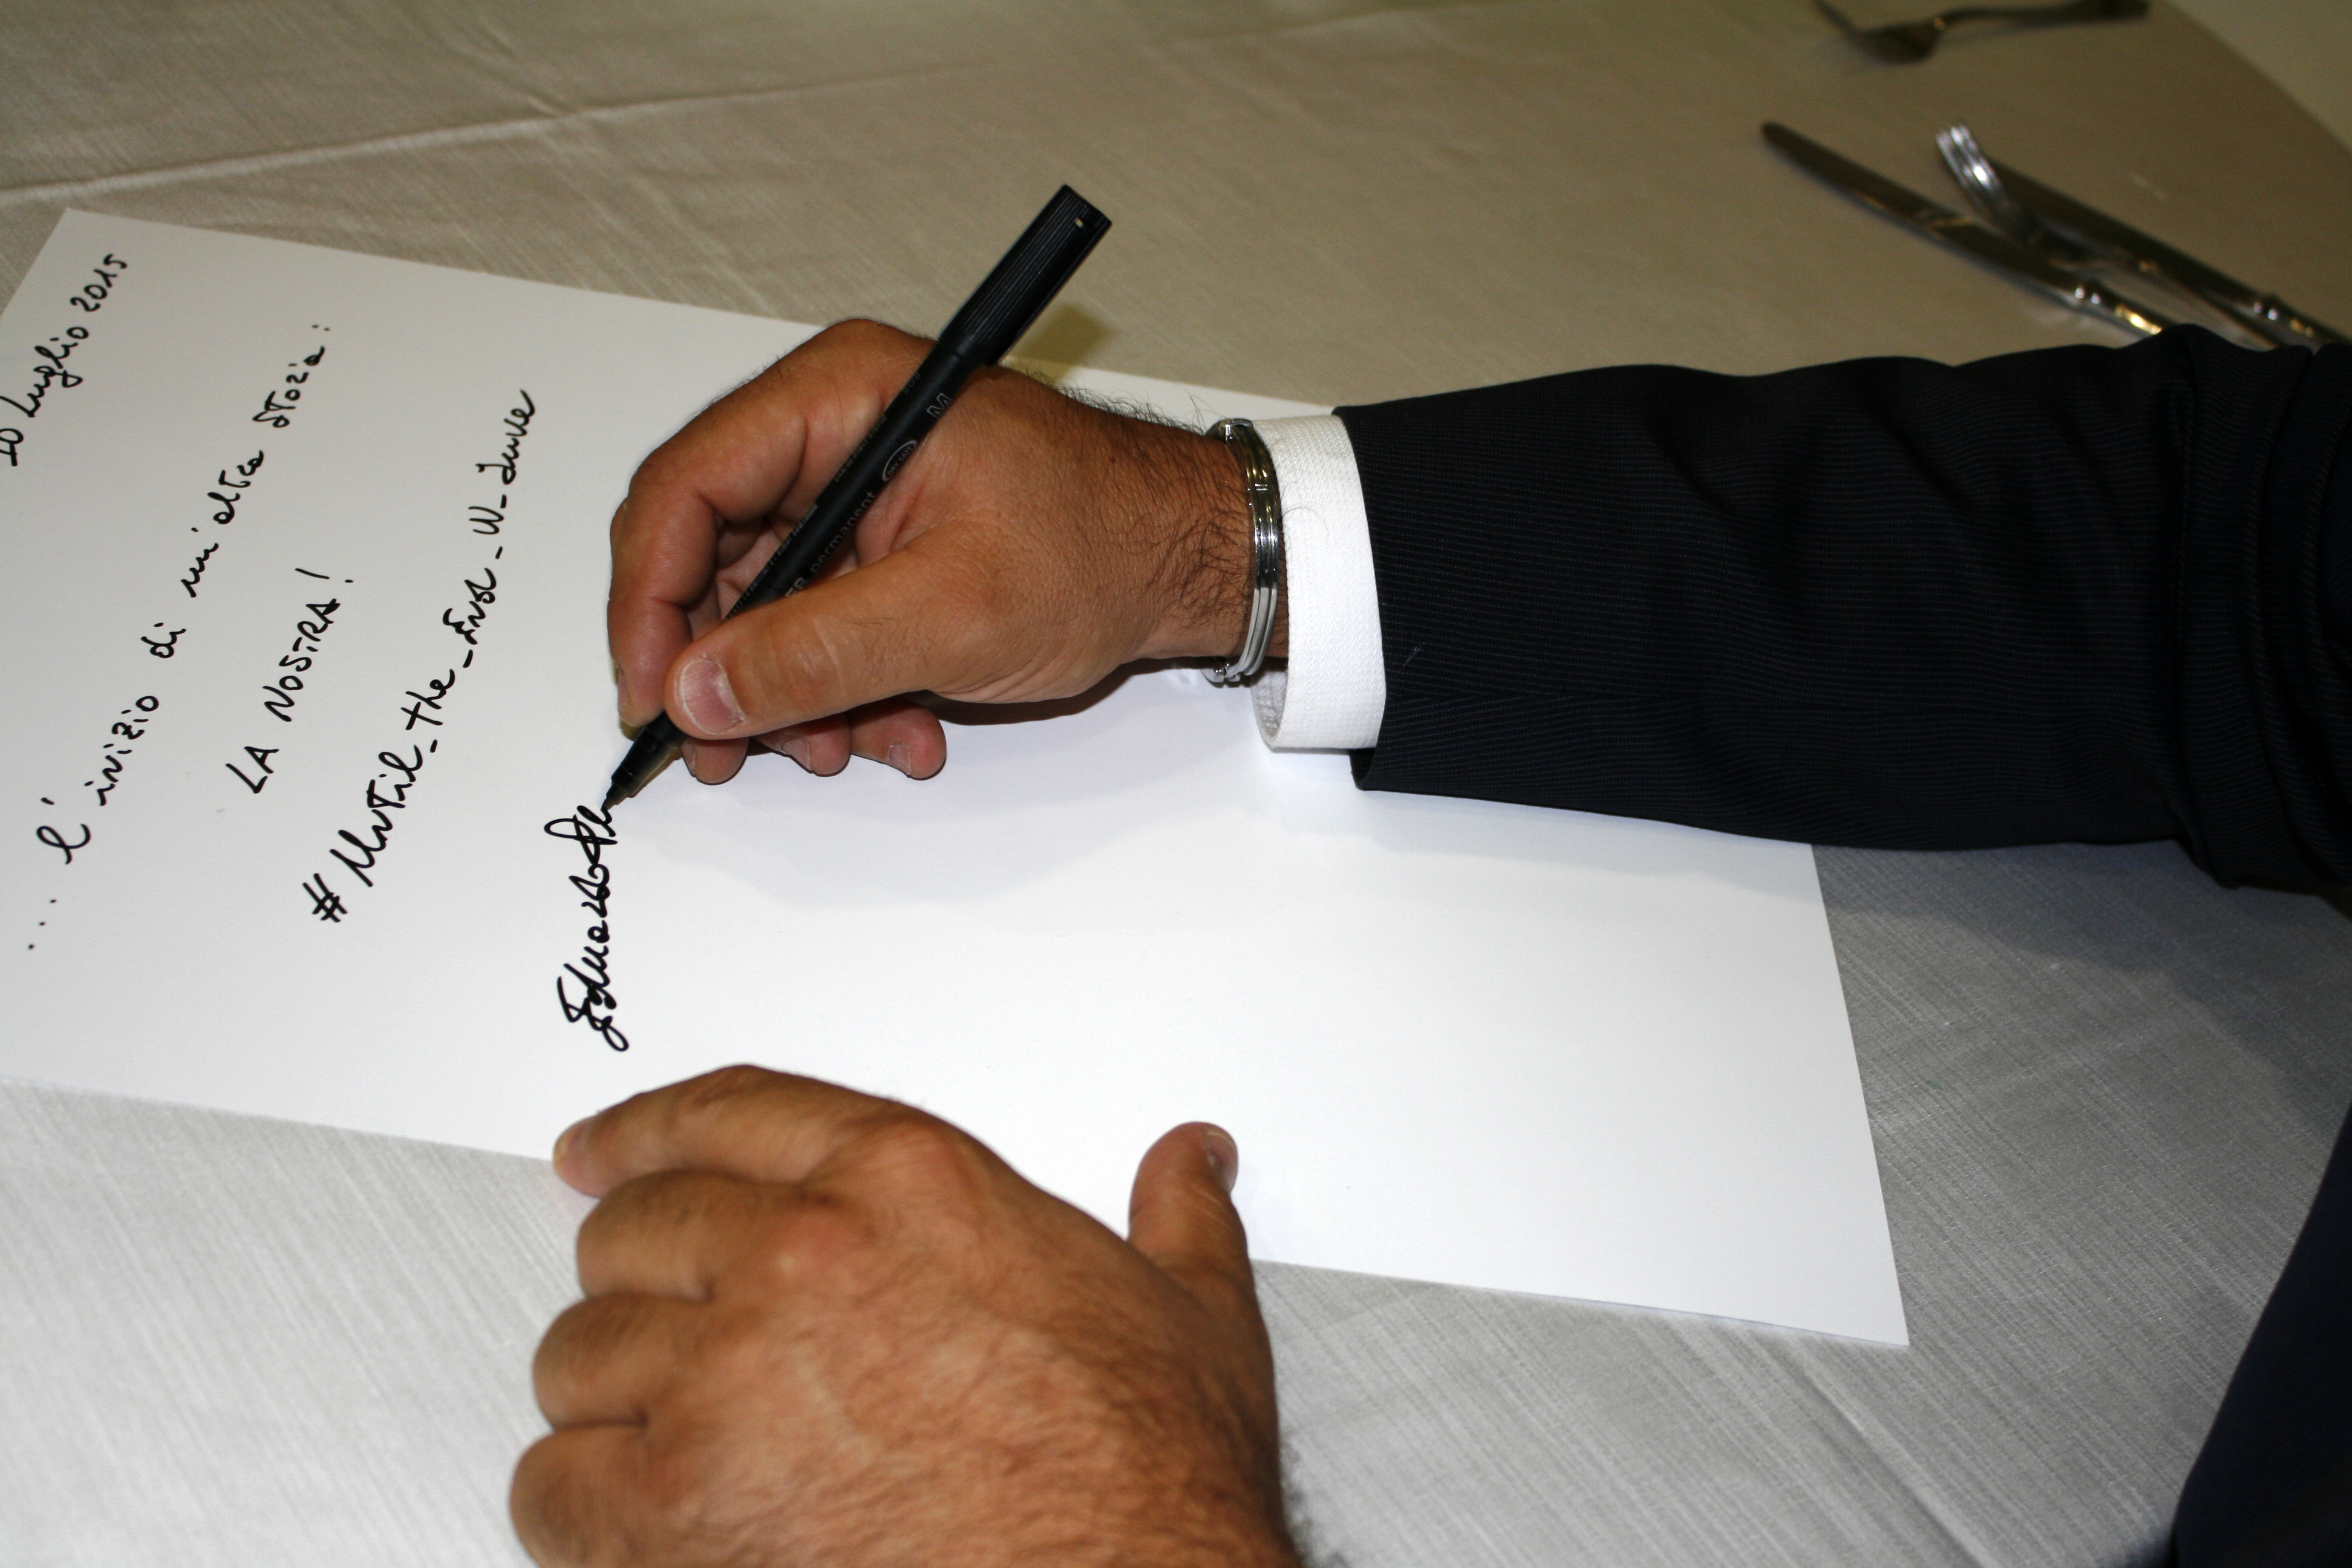 10 Luglio 2015
... l'inizio di un'altra storia:
LA NOSTRA!
# Until_the_End_W_Juve
Edoardo
permanent M